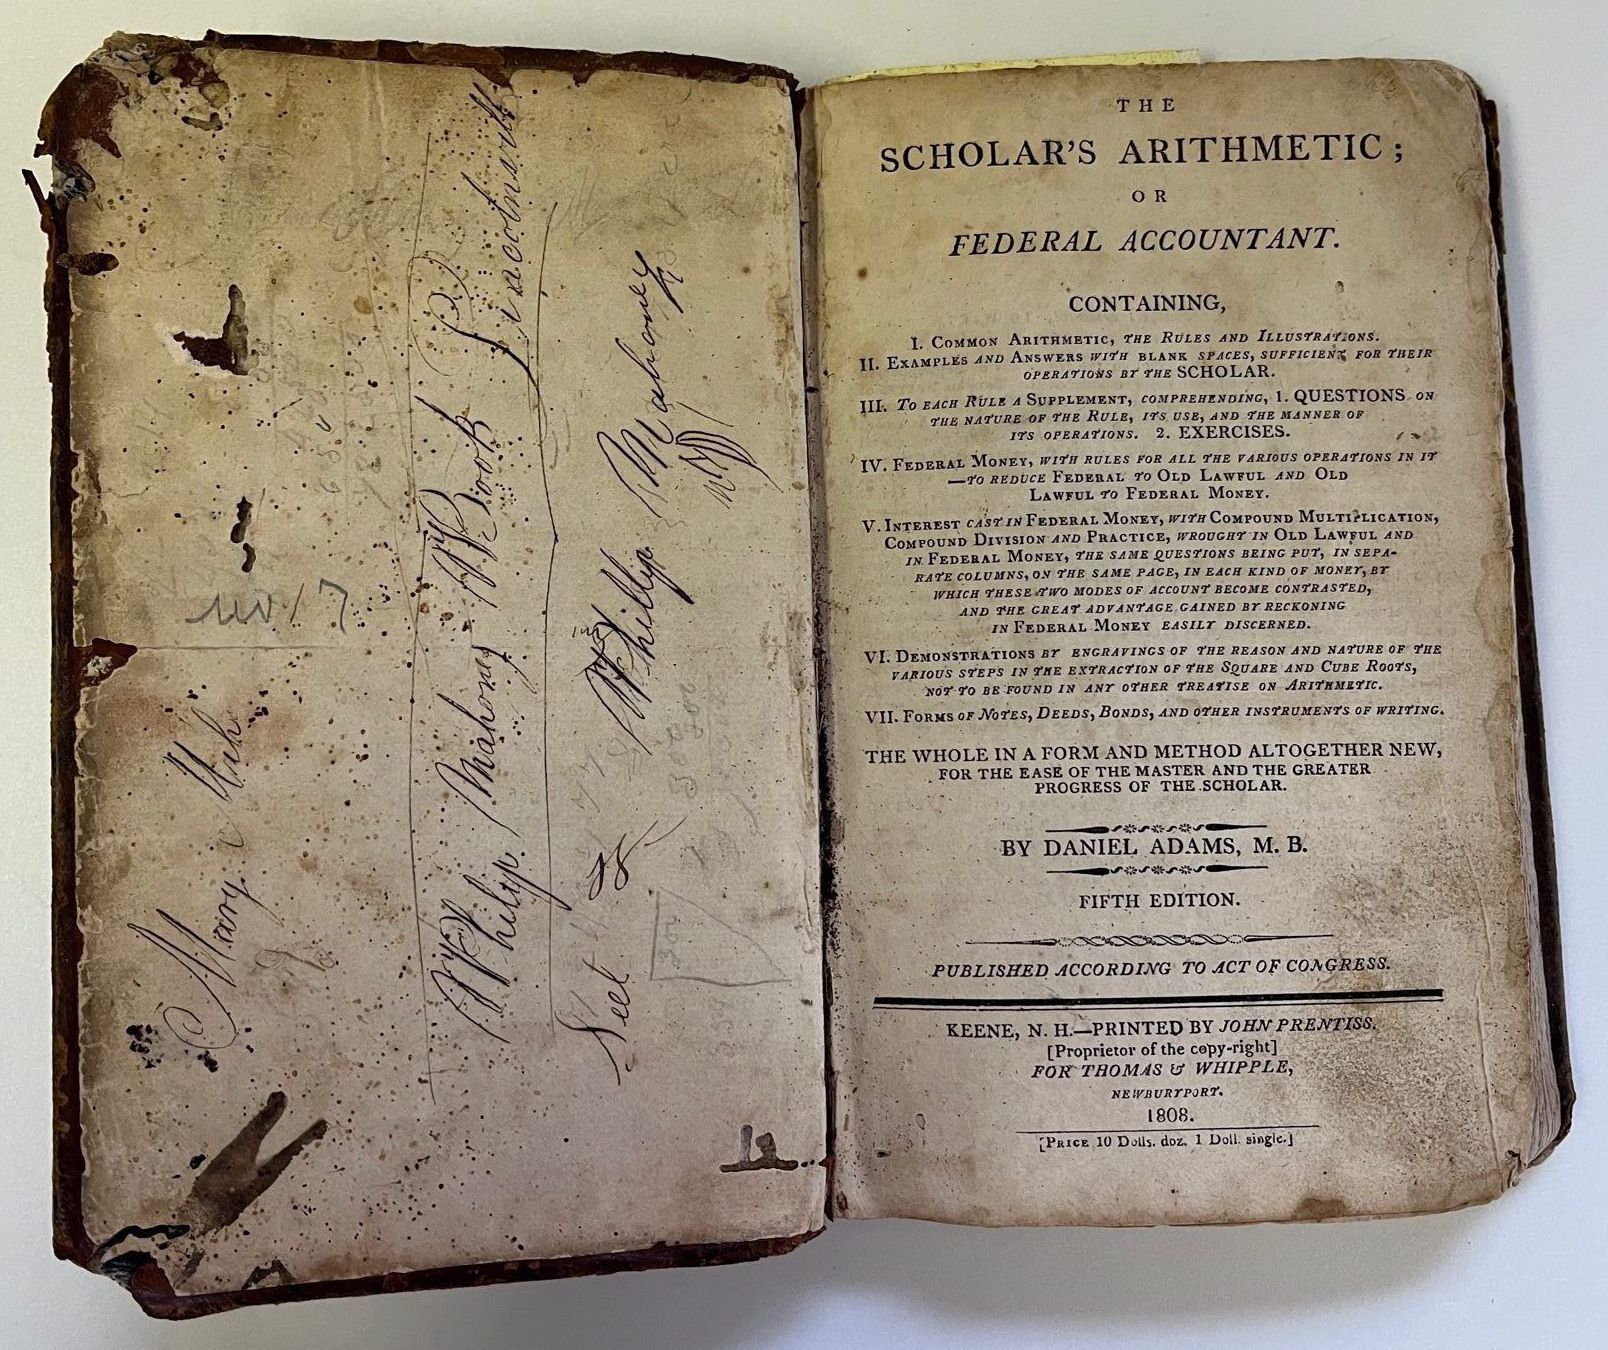 Mary
Philip Mahoney Book
Philip Mahoney
THE
SCHOLAR'S ARITHMETIC;
OR
FEDERAL ACCOUNTANT.
CONTAINING,
I. COMMON ARITHMETIC, THE RULES AND ILLUSTRATIONS.
II. EXAMPLES AND ANSWERS WITH BLANK SPACES, SUFFICIENT FOR THEIR
OPERATIONS BY THE SCHOLAR.
III. TO EACH RULE A SUPPLEMENT, COMPREHENDING, 1. QUESTIONS ON
THE NATURE OF THE RULE, ITS USE, AND THE MANNER OF
ITS OPERATIONS. 2. EXERCISES.
IV. FEDERAL MONEY, WITH RULES FOR ALL THE VARIOUS OPERATIONS IN IT
—TO REDUCE FEDERAL TO OLD LAWFUL AND OLD
LAWFUL TO FEDERAL MONEY.
V. INTEREST CAST IN FEDERAL MONEY, WITH COMPOUND MULTIPLICATION,
COMPOUND DIVISION AND PRACTICE, WROUGHT IN OLD LAWFUL AND
IN FEDERAL MONEY, THE SAME QUESTIONS BEING PUT, IN SEPA-
RATE COLUMNS, ON THE SAME PAGE, IN EACH KIND OF MONEY, BY
WHICH THESE TWO MODES OF ACCOUNT BECOME CONTRASTED,
AND THE GREAT ADVANTAGE GAINED BY RECKONING
IN FEDERAL MONEY EASILY DISCERNED.
VI. DEMONSTRATIONS BY ENGRAVINGS OF THE REASON AND NATURE OF THE
VARIOUS STEPS IN THE EXTRACTION OF THE SQUARE AND CUBE ROOTS,
NOT TO BE FOUND IN ANY OTHER TREATISE ON ARITHMETIC.
VII. FORMS OF NOTES, DEEDS, BONDS, AND OTHER INSTRUMENTS OF WRITING.
THE WHOLE IN A FORM AND METHOD ALTOGETHER NEW,
FOR THE EASE OF THE MASTER AND THE GREATER
PROGRESS OF THE SCHOLAR.
BY DANIEL ADAMS, M. B.
FIFTH EDITION.
PUBLISHED ACCORDING TO ACT OF CONGRESS.
KEENE, N. H.—PRINTED BY JOHN PRENTISS.
[Proprietor of the copy-right]
FOR THOMAS & WHIPPLE,
NEWBURYPORT.
1808.
[PRICE 10 Dolls. doz. 1 Doll. single.]